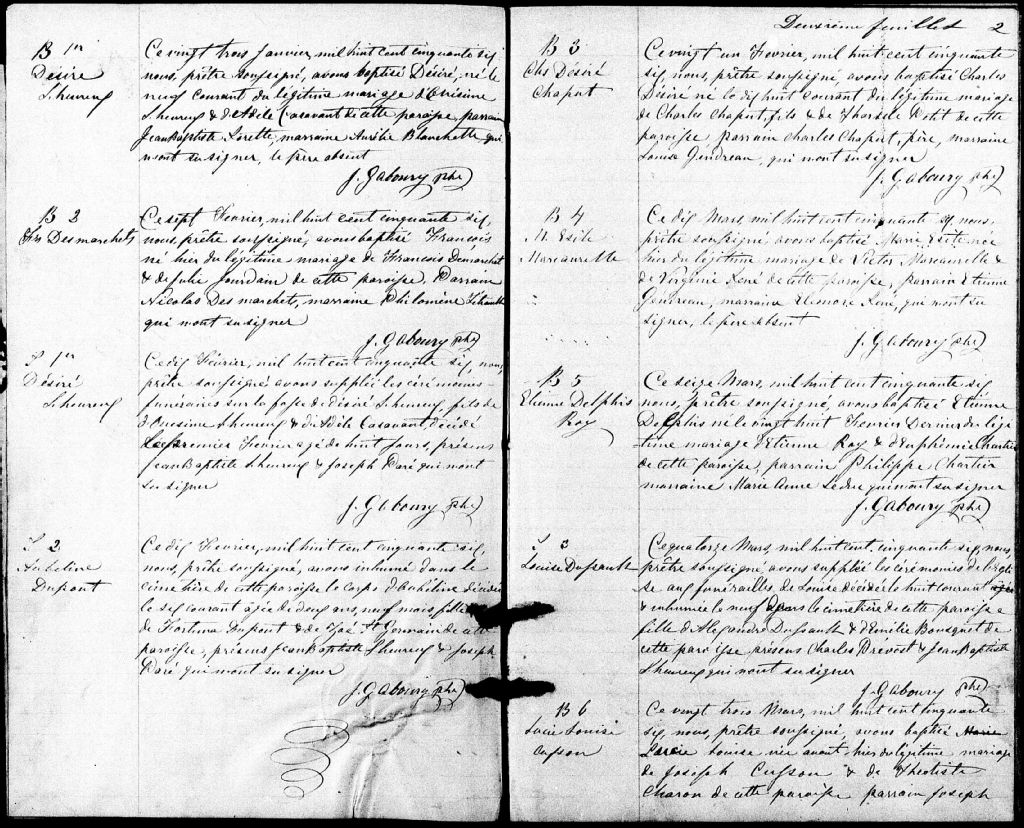 B 1er
Désiré
Lheureux
Ce vingt trois Janvier, mil huit cent cinquante six,
nous, prêtre soussigné, avons baptisé Désiré, né le
neuf courant du légitime mariage d'Onésime
Lheureux & d'Adèle Casavant de cette paroisse, parrain
Jean Baptiste Lorette, marraine Aurélie Blanchette qui
n'ont su signer, le père absent
J. Gaboury ptre
B 2
Frs Desmarchets
Ce sept Fevrier, mil huit cent cinquante six,
nous, prêtre soussigné, avons baptisé François
né hier du légitime mariage de François Demarchet
& de Julie Jourdain de cette paroisse. Parrain
Nicolas Des marchets, marraine Philomène
qui n'ont su signer
J. Gaboury ptre
S 1er
Désiré
Lheureux
Ce dix Février, mil huit cent cinquante six, nous,
prêtre soussigné avons supplée les cérémonies
funéraires sur la fosse de désiré Lheureux, fils de
Onesime Lheureux & d'Adèle Casavant décédé
le premier Fevrier agé de huit jours, présens
Jean Baptiste Lheureux & Joseph Daré qui n'ont
su signer
J. Gaboury ptre
S 2
Aubeline
Dupont
Ce dix Fevrier, mil huit cent cinquante six,
nous, prêtre soussigné, avons inhumé dans le
cimetière de cette paroisse le corps d'Aubéline décédée
le six courant agée de deux ans, neuf mois, fille
de Fortuna Dupont & de Zoé St Germain de cette
paroisse, présens Jean Baptiste Lheureux & Joseph
Daré qui n'ont su signer
J. Gaboury ptre
Deuxième feuillet 2
B 3
Chs Désiré
Chaput
Ce vingt un Fevrier, mil huit cent cinquante
six, nous, prêtre soussigné, avons baptisé Charles
Désiré né le dix huit courant du légitime mariage
de Charles Chaput, fils & de Tharsile Petit de cette
paroisse, parrain Charles Chaput, père, marraine
Louise Gendreau, qui n'ont su signer
J. Gaboury ptre
B 4
M. Esite
Marcaurelle
Ce dix Mars, mil huit cent cinquante six nous,
prêtre soussigné, avons baptisé Marie, Esite née
hier du légitime mariage de Victor Marcaurelle &
de Virginie René de cette paroisse, parrain Etienne
Gendreau, marraine Eleonore René, qui n'ont su
signer, le père absent
J. Gaboury ptre
B 5
Etienne Delphis
Roy
Ce seize Mars, mil huit cent cinquante six
nous, prêtre soussigné, avons baptisé Etienne
Delphis né le vingt huit Fevrier Dernier du légi
time mariage d'Etienne Roy & d'Euphémie Chartier
de cette paroisse, parrain Philippe Chartier
marraine Marie Anne Ledue qui n'ont su signer
J. Gaboury ptre
S 3
Louise Dussault
Ce quatorze Mars, mil huit cent, cinquante six, nous,
prêtre soussigné, avons supplée les cérémonies de l'égli
se aux funérailles de Louise décédée le huit courant
& inhumée le neuf dans le cimetière de cette paroisse
fille d'Alexandre Dussault & d'Emilie Bousquet de
cette paroisse présens Charles Prevost & Jean Baptiste
Lheureux qui n'ont su signer
J. Gaboury ptre
B 6
Lucie Louise
Cusson
Ce vingt trois Mars, mil huit cent cinquante
six, nous, prêtre soussigné, avons baptisé Marie
Lucie Louise née avant hier du légitime mariage
de Joseph Cusson & de Theotiste
Charon de cette paroisse parrain Joseph